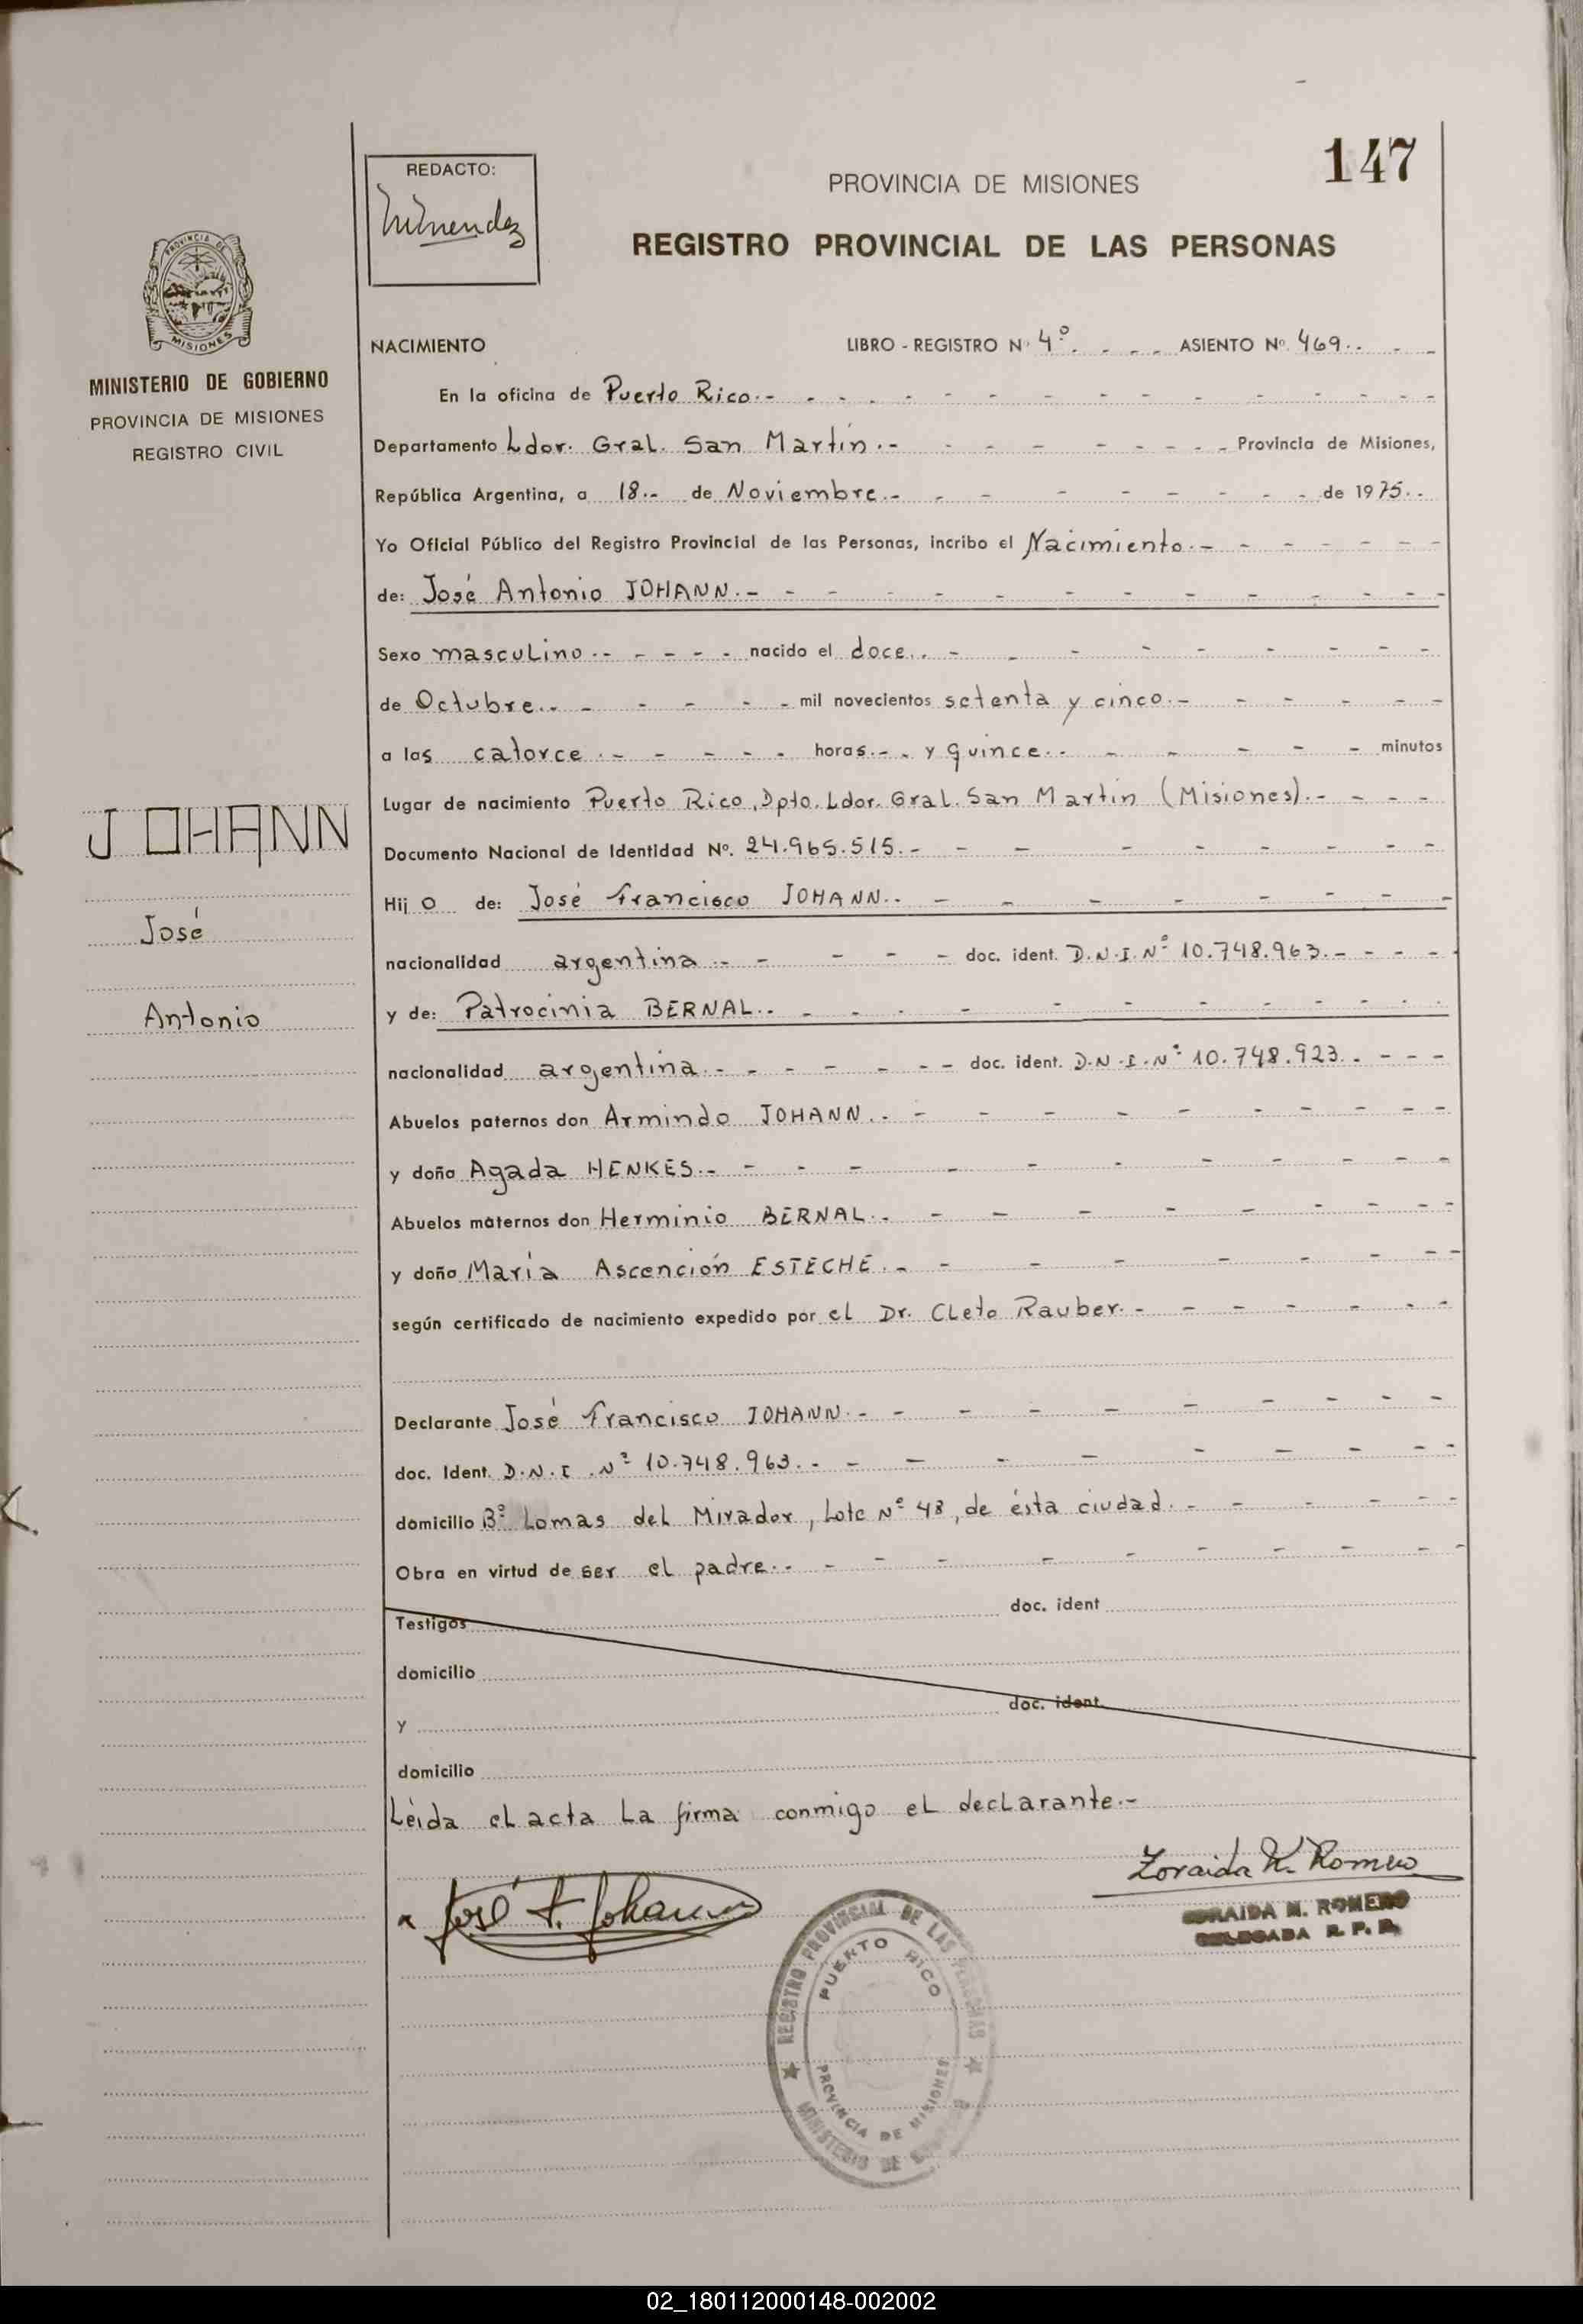 147
REDACTO:
PROVINCIA DE MISIONES
REGISTRO PROVINCIAL DE LAS PERSONAS
PROVINCIA DE
MISIONES
MINISTERIO DE GOBIERNO
PROVINCIA DE MISIONES
REGISTRO CIVIL
JOHANN
José
Antonio
NACIMIENTO LIBRO - REGISTRO Nº 4º. - - - ASIENTO Nº. 469.. - -
En la oficina de Puerto Rico.-
Departamento Ldor. Gral. San Martín.- Provincia de Misiones,
República Argentina, a 18.- de Noviembre.- de 1975..
Yo Oficial Público del Registro Provincial de las Personas, incribo el Nacimiento.-
de: José Antonio JOHANN.-
Sexo masculino.- nacido el doce..-
de Octubre..- mil novecientos setenta y cinco.-
a las catorce.- horas.-. y quince.- minutos
Lugar de nacimiento Puerto Rico, Dpto. Ldor. Gral. San Martín (Misiones).-
Documento Nacional de Identidad Nº. 24.965.515.-
Hij o de: José Francisco JOHANN..-
nacionalidad argentina.- doc. ident. D.N.I. Nº 10.748.963.-
y de: Patrocinia BERNAL..-
nacionalidad argentina.- doc. ident. D.N.I. Nº 10.748.923..-
Abuelos paternos don Armindo JOHANN..-
y doña Agada HENKES.-
Abuelos maternos don Herminio BERNAL..-
y doña María Ascención ESTECHE..-
según certificado de nacimiento expedido por el Dr. Cleto Rauber.-
Declarante José Francisco JOHANN.-
doc. Ident. D.N.I. Nº 10.748.963.-
domicilio Bº Lomas del Mirador, Lote Nº 48, de ésta ciudad.-
Obra en virtud de ser el padre..-
Testigos doc. ident
domicilio
y doc. ident.
domicilio
Leída el acta La firma conmigo el declarante.-
José F. Johann
Zoraida M. Romero
ZORAIDA M. ROMERO
DELEGADA R. P. P.
REGISTRO PROVINCIAL DE LAS PERSONAS
PUERTO RICO
PROVINCIA DE MISIONES
MINISTERIO DE
02_180112000148-002002